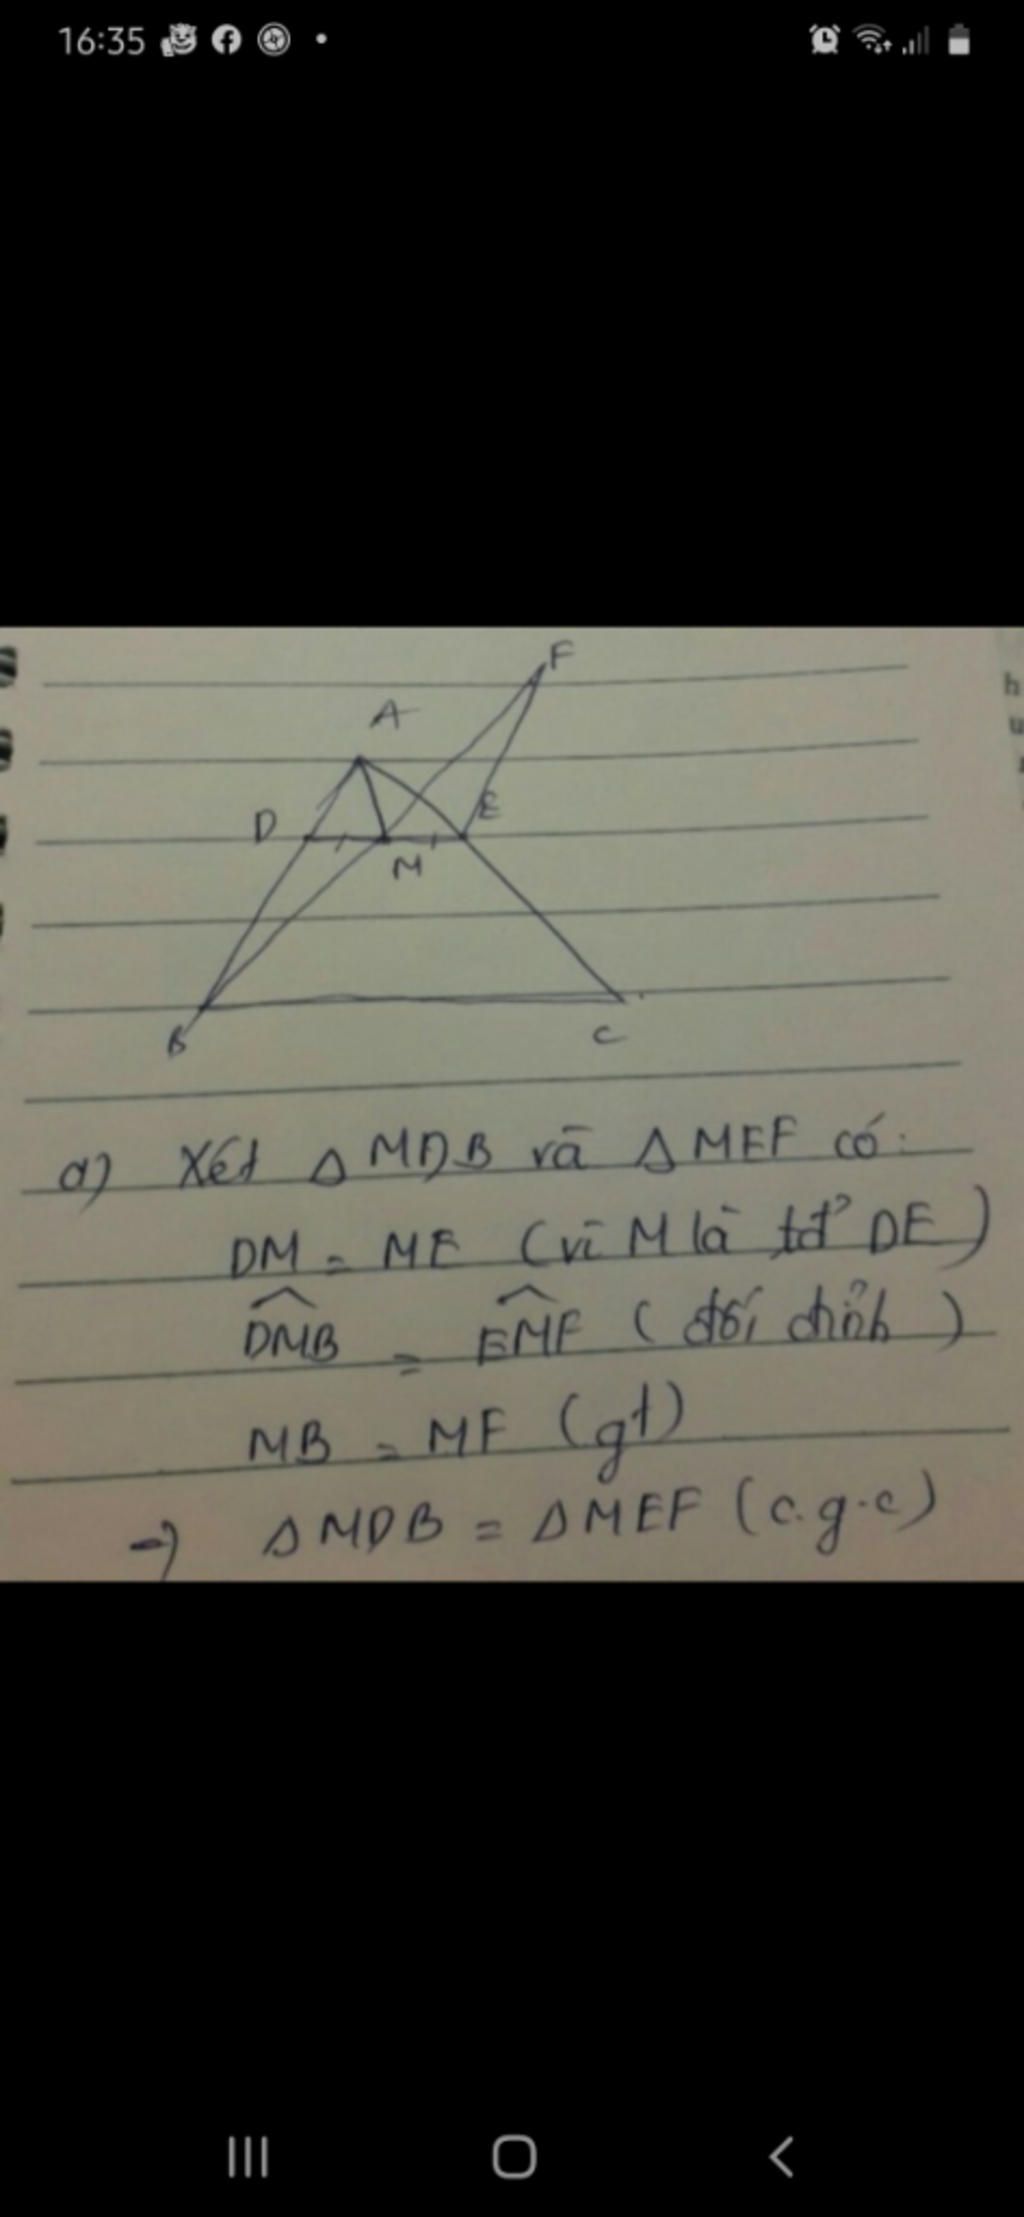 16:35
F
A
D
E
M
B
C
h
u
a) Xét Δ MDB và Δ MEF có:
DM = ME (vì M là tđ' DE)
DMB = EMF (đối đỉnh)
MB = MF (gt)
=) ΔMDB = ΔMEF (c.g.c)